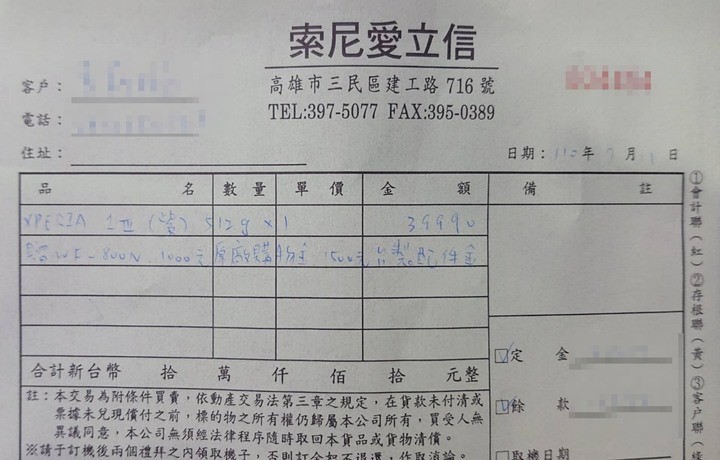 索尼愛立信
客戶：
高雄市三民區建工路 716 號
電話：
TEL:397-5077 FAX:395-0389
住址：
日期：110年7月 日
品名 數量 單價 金額 備註
XPERIA 1III (紫) 512g x1 39990
贈WF-800N. 1000元原廠購物金 1500元 配件金
合計新台幣 拾 萬 仟 佰 拾 元整
定金
餘款
取機日期
註：本交易為附條件買賣，依動產交易法第三章之規定，在貨款未付清或
票據未兌現償付之前，標的物之所有權仍歸屬本公司所有，買受人無
異議同意，本公司無須經法律程序隨時取回本貨品或貨物清償。
※請于訂機後兩個禮拜之內領取機子，否則訂金恕不退還，作取消論。
①會計聯(紅) ②存根聯(黃) ③客戶聯